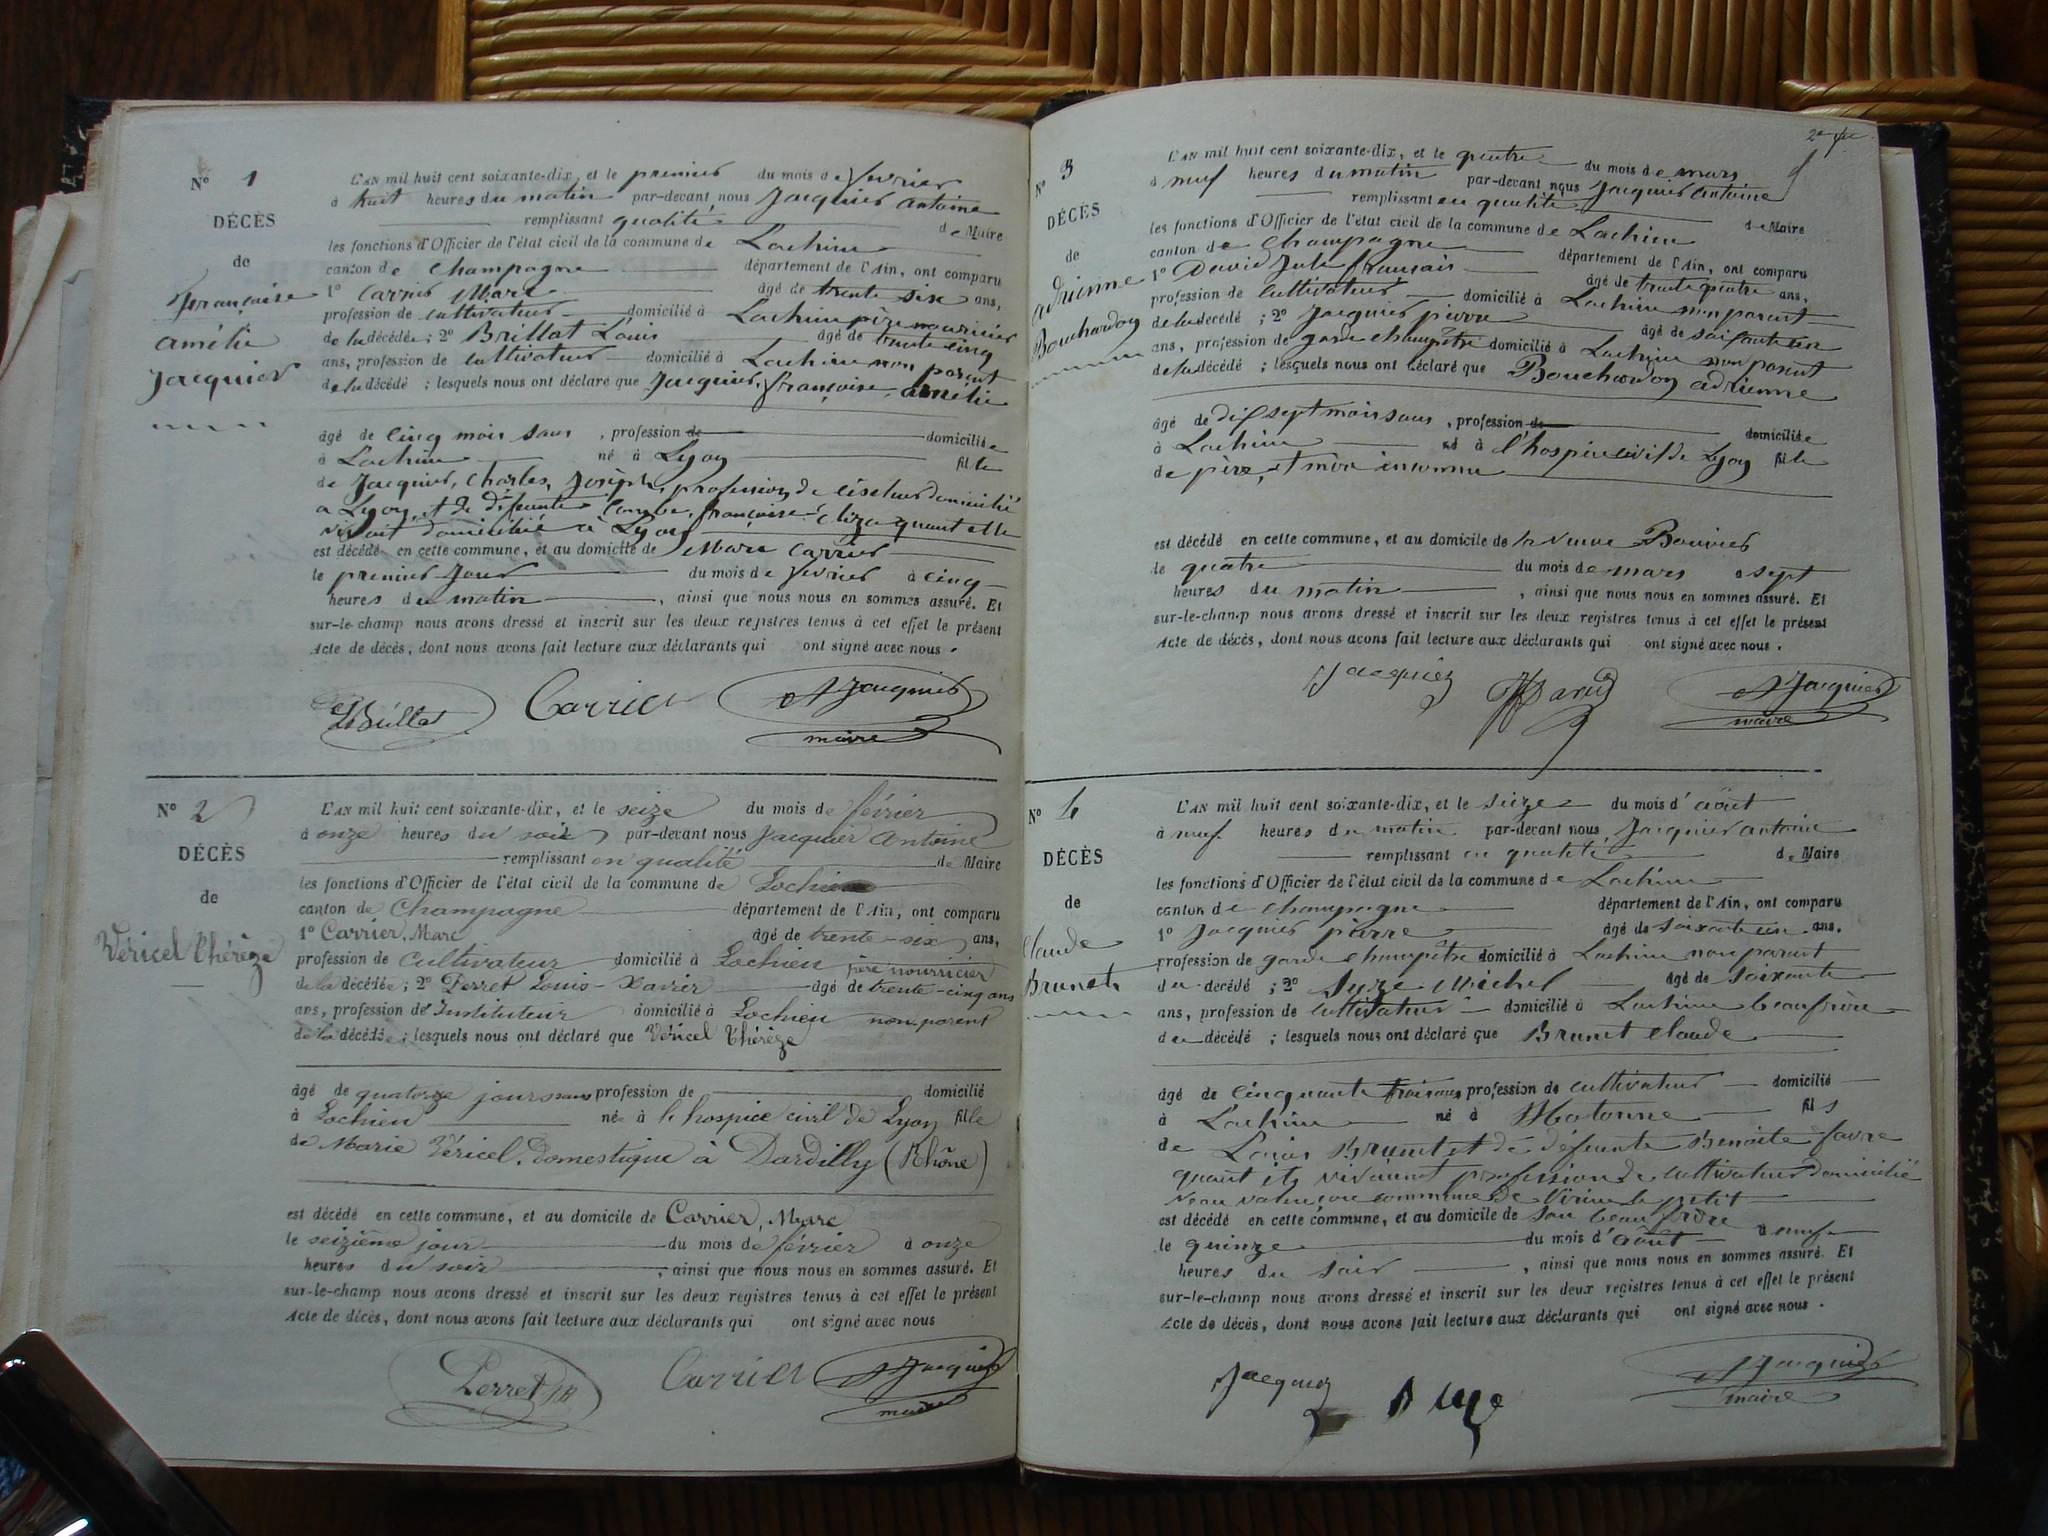 N° 1
DÉCÈS
de
Françoise
Amélie
Jacquier
L'AN mil huit cent soixante-dix, et le premier du mois de fevrier
à huit heures du matin par-devant nous Jacquier Antoine
remplissant qualité de Maire
les fonctions d'Officier de l'état civil de la commune de Lochieu
canton de Champagne département de l'Ain, ont comparu
1° Carrier Marc âgé de trente six ans,
profession de cultivateur domicilié à Lochieu père nouricier
de la décédée; 2° Brillat Louis âgé de trente cinq
ans, profession de cultivateur domicilié à Lochieu non parent
de la décédé ; lesquels nous ont déclaré que Jacquier, françoise, amélie
âgé de cinq mois sans , profession de domicilié
à Lochieu né à Lyon fille
de Jacquier, Charles, Josèph, profession de ciseleur domicilié
a Lyon, et de défunte françoise quant elle
vivait domicilié à Lyon
est décédé en cette commune, et au domicile de Marc Carrier
le premier jour du mois de fevrier à cinq
heures du matin , ainsi que nous nous en sommes assuré. Et
sur-le-champ nous avons dressé et inscrit sur les deux registres tenus à cet effet le présent
Acte de décès, dont nous avons fait lecture aux déclarants qui ont signé avec nous.
LBrillat Carrier A Jacquier
maire
N° 2
DÉCÈS
de
Véricel Thérèze
L'AN mil huit cent soixante-dix, et le seize du mois de février
à onze heures du soir par-devant nous Jacquier Antoine
remplissant en qualité de Maire
les fonctions d'Officier de l'état civil de la commune de Lochieu
canton de Champagne département de l'Ain, ont comparu
1° Carrier, Marc âgé de trente-six ans,
profession de cultivateur domicilié à Lochieu père nourricier
de la décédée; 2° Perret Louis-Xavier âgé de trente-cinq ans
ans, profession d'Instituteur domicilié à Lochieu non parent
de la décédé ; lesquels nous ont déclaré que Véricel Thérèze
âgé de quatorze jours sans profession de domicilié
à Lochieu née à l'hospice civil de Lyon fille
de Marie Véricel, domestique à Dardilly (Rhône)
est décédé en cette commune, et au domicile de Carrier, Marc
le seizième jour du mois de février à onze
heures du soir , ainsi que nous nous en sommes assuré. Et
sur-le-champ nous avons dressé et inscrit sur les deux registres tenus à cet effet le présent
Acte de décès, dont nous avons fait lecture aux déclarants qui ont signé avec nous
Perret Carrier A Jacquier
maire
N° 3
DÉCÈS
de
adrienne
Bouchardon
L'AN mil huit cent soixante-dix, et le quatre du mois de mars
à neuf heures du matin par-devant nous Jacquier Antoine
remplissant en qualité de Maire
les fonctions d'Officier de l'état civil de la commune de Lochieu
canton de Champagne département de l'Ain, ont comparu
1° David Jule français âgé de trente quatre ans,
profession de cultivateur domicilié à Lochieu non parent
de la décédé ; 2° Jacquier pierre âgé de soisante un
ans, profession de garde champêtre domicilié à Lochieu non parent
de la décédé ; lesquels nous ont déclaré que Bouchardon adrienne
âgé de dix sept mois sans , profession de domicilié
à Lochieu né à l'hospice civil de Lyon fille
de père, et mère inconnu
est décédé en cette commune, et au domicile de la veuve Bouvier
le quatre du mois de mars à sept
heures du matin , ainsi que nous nous en sommes assuré. Et
sur-le-champ nous avons dressé et inscrit sur les deux registres tenus à cet effet le présent
Acte de décès, dont nous avons fait lecture aux déclarants qui ont signé avec nous.
Jacquier David A Jacquier
maire
N° 4
DÉCÈS
de
Claude
Brunet
L'AN mil huit cent soixante-dix, et le seize du mois d'août
à neuf heures du matin par-devant nous Jacquier antoine
remplissant en qualité de Maire
les fonctions d'Officier de l'état civil de la commune de Lochieu
canton de champagne département de l'Ain, ont comparu
1° Jacquier pierre âgé de soixante un ans,
profession de garde champêtre domicilié à Lochieu non parent
du décédé ; 2° Suze Michel âgé de soixante
ans, profession de cultivateur domicilié à Lochieu beaufrère
du décédé ; lesquels nous ont déclaré que Brunet Claude
âgé de cinquante trois ans profession de cultivateur domicilié
à Lochieu né à Hotonne fils
de Louis Brunet et de défunte Benoite favre
quant ils vivaient profession de cultivateur domicilié
commune de Virieu le petit
est décédé en cette commune, et au domicile de son beau frère
le quinze du mois d'août à neuf
heures du soir , ainsi que nous nous en sommes assuré. Et
sur-le-champ nous avons dressé et inscrit sur les deux registres tenus à cet effet le présent
Acte de décès, dont nous avons fait lecture aux déclarants qui ont signé avec nous.
Jacquier Suze A Jacquier
maire